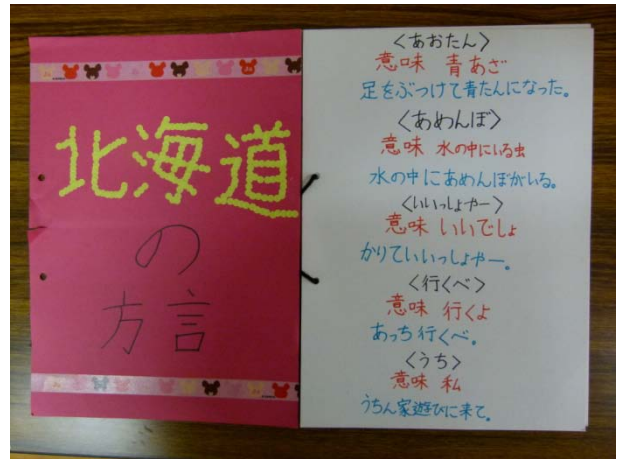 北海道
の
方言
〈あおたん〉
意味 青あざ
足をぶつけて青たんになった。
〈あめんぼ〉
意味 水の中にいる虫
水の中にあめんぼがいる。
〈いいっしょやー〉
意味 いいでしょ
かりていいっしょやー。
〈行くべ〉
意味 行くよ
あっち行くべ。
〈うち〉
意味 私
うちん家遊びに来て。